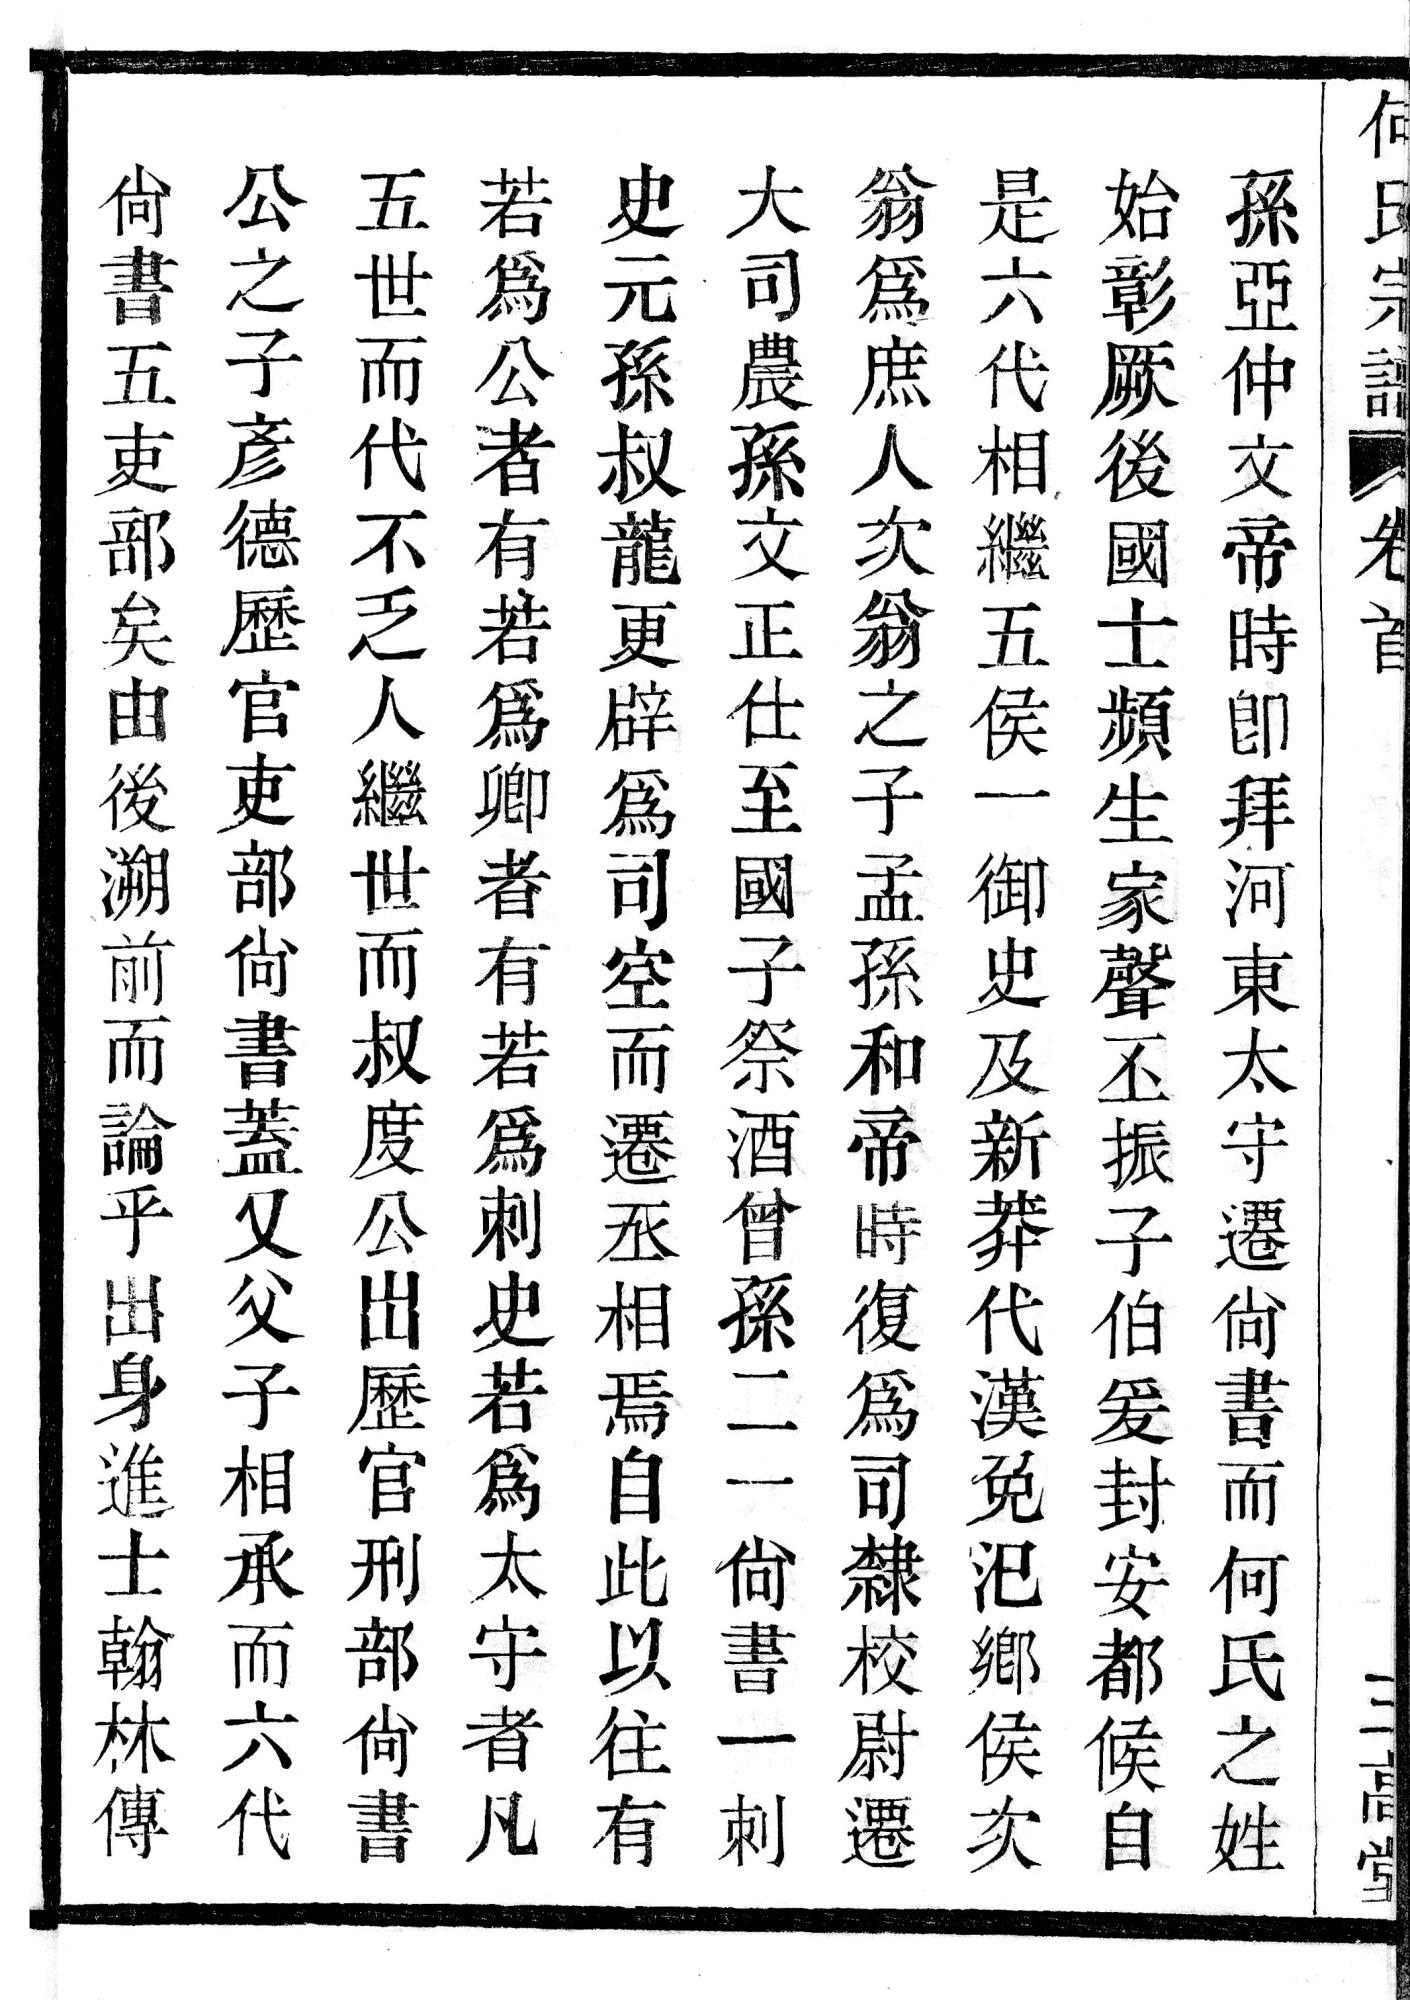 何氏宗譜 卷首 三高堂
孫亞仲文帝時卽拜河東太守遷尙書而何氏之姓
始彰厥後國士頻生家聲丕振子伯爰封安都候自
是六代相繼五侯一御史及新莽代漢免汜鄉侯次
翁爲庶人次翁之子孟孫和帝時復爲司隸校尉遷
大司農孫文正仕至國子祭酒曾孫二一尙書一刺
史元孫叔龍更辟爲司空而遷丞相焉自此以往有
若爲公者有若爲卿者有若爲刺史若爲太守者凡
五世而代不乏人繼世而叔度公出歷官刑部尙書
公之子彥德歷官吏部尙書蓋又父子相承而六代
尙書五吏部矣由後溯前而論乎出身進士翰林傳